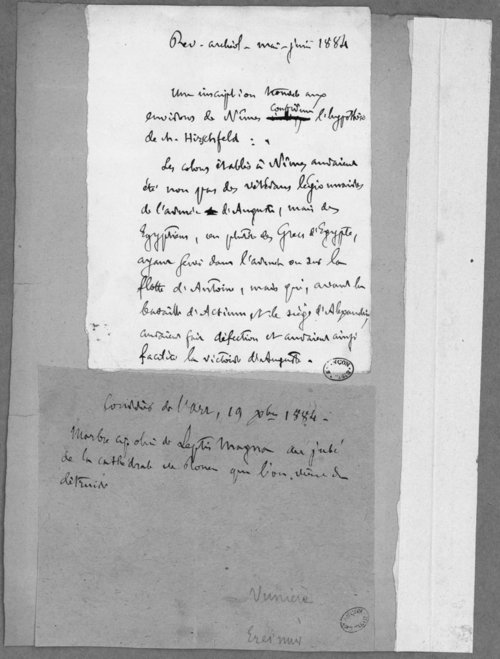 Rev. archéol - mai-juin 1884
Une inscription trouvée aux
environs de Nîmes confirme l'hypothèse
de M. Hirschfeld :
Les colons établis à Nîmes auraient
été non pas des vétérans légionnaires
de l'armée d'Auguste, mais des
Egyptiens, ou plutôt des Grecs d'Egypte,
ayant servi dans l'armée ou sur la
flotte d'Antoine, mais qui, avant la
bataille d'Actium et le siège d'Alexandrie,
auraient fait défection et auraient ainsi
facilité la victoire d'Auguste.
Courrier de l'Art, 19 Xbre 1884 -
Marbre cipolin de Leptis Magna au jubé
de la cathédrale de Rouen que l'on vient de
détruire